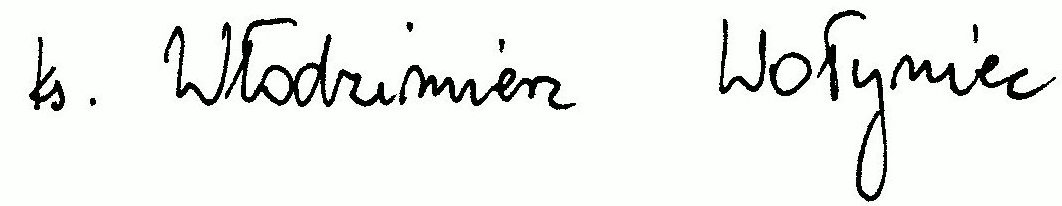 ks. Włodzimierz Wołyniec